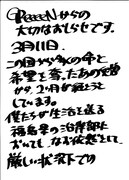 GReeeeNからの
大切なおしらせです。
3月11日.
この国から多くの命と
希望を奪ったあの震災
から、2ヶ月が経とうと
しています。
僕たちが生活を送る
福島県の沿岸部に
おいても、なお依然として
厳しい状況下での